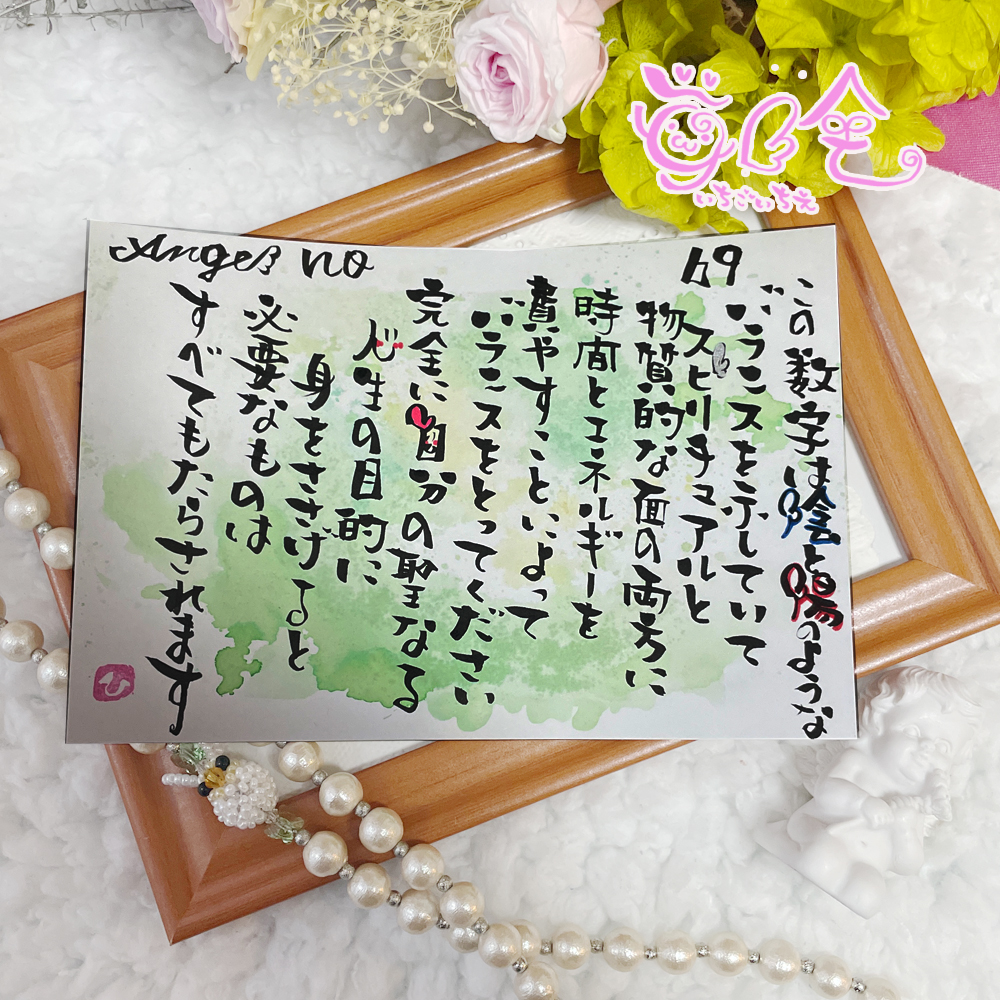 Angel no 69
この数字は陰と陽のような
バランスを示していて
スピリチュアルと
物質的な面の両方に
時間とエネルギーを
費やすことによって
バランスをとってください
完全に自分の聖なる
人生の目的に
身をささげると
必要なものは
すべてもたらされます
いちごいちえ